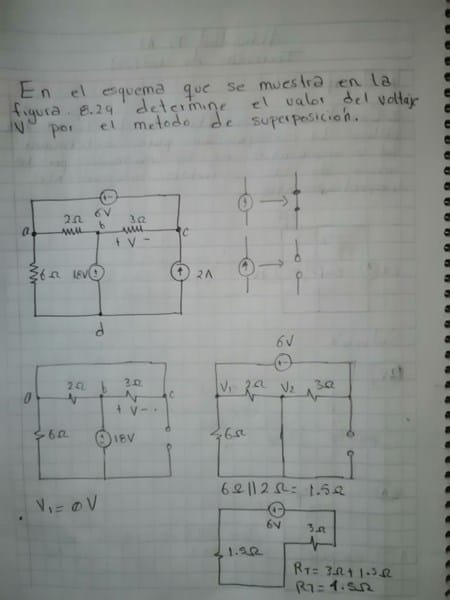 En el esquema que se muestra en la
figura 8.29 determine el valor del voltaje
V por el metodo de superposición.
6V
2Ω b 3Ω
a + V - c
6Ω 18V 2A
d
2Ω b 3Ω c
a + V -
6Ω 18V
V₁ = 0V
6V
V₁ 2Ω V₂ 3Ω
6Ω
6Ω || 2Ω = 1.5Ω
6V
3Ω
1.5Ω
RT = 3Ω + 1.5Ω
RT = 4.5Ω